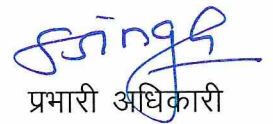 Ssingh
प्रभारी अधिकारी